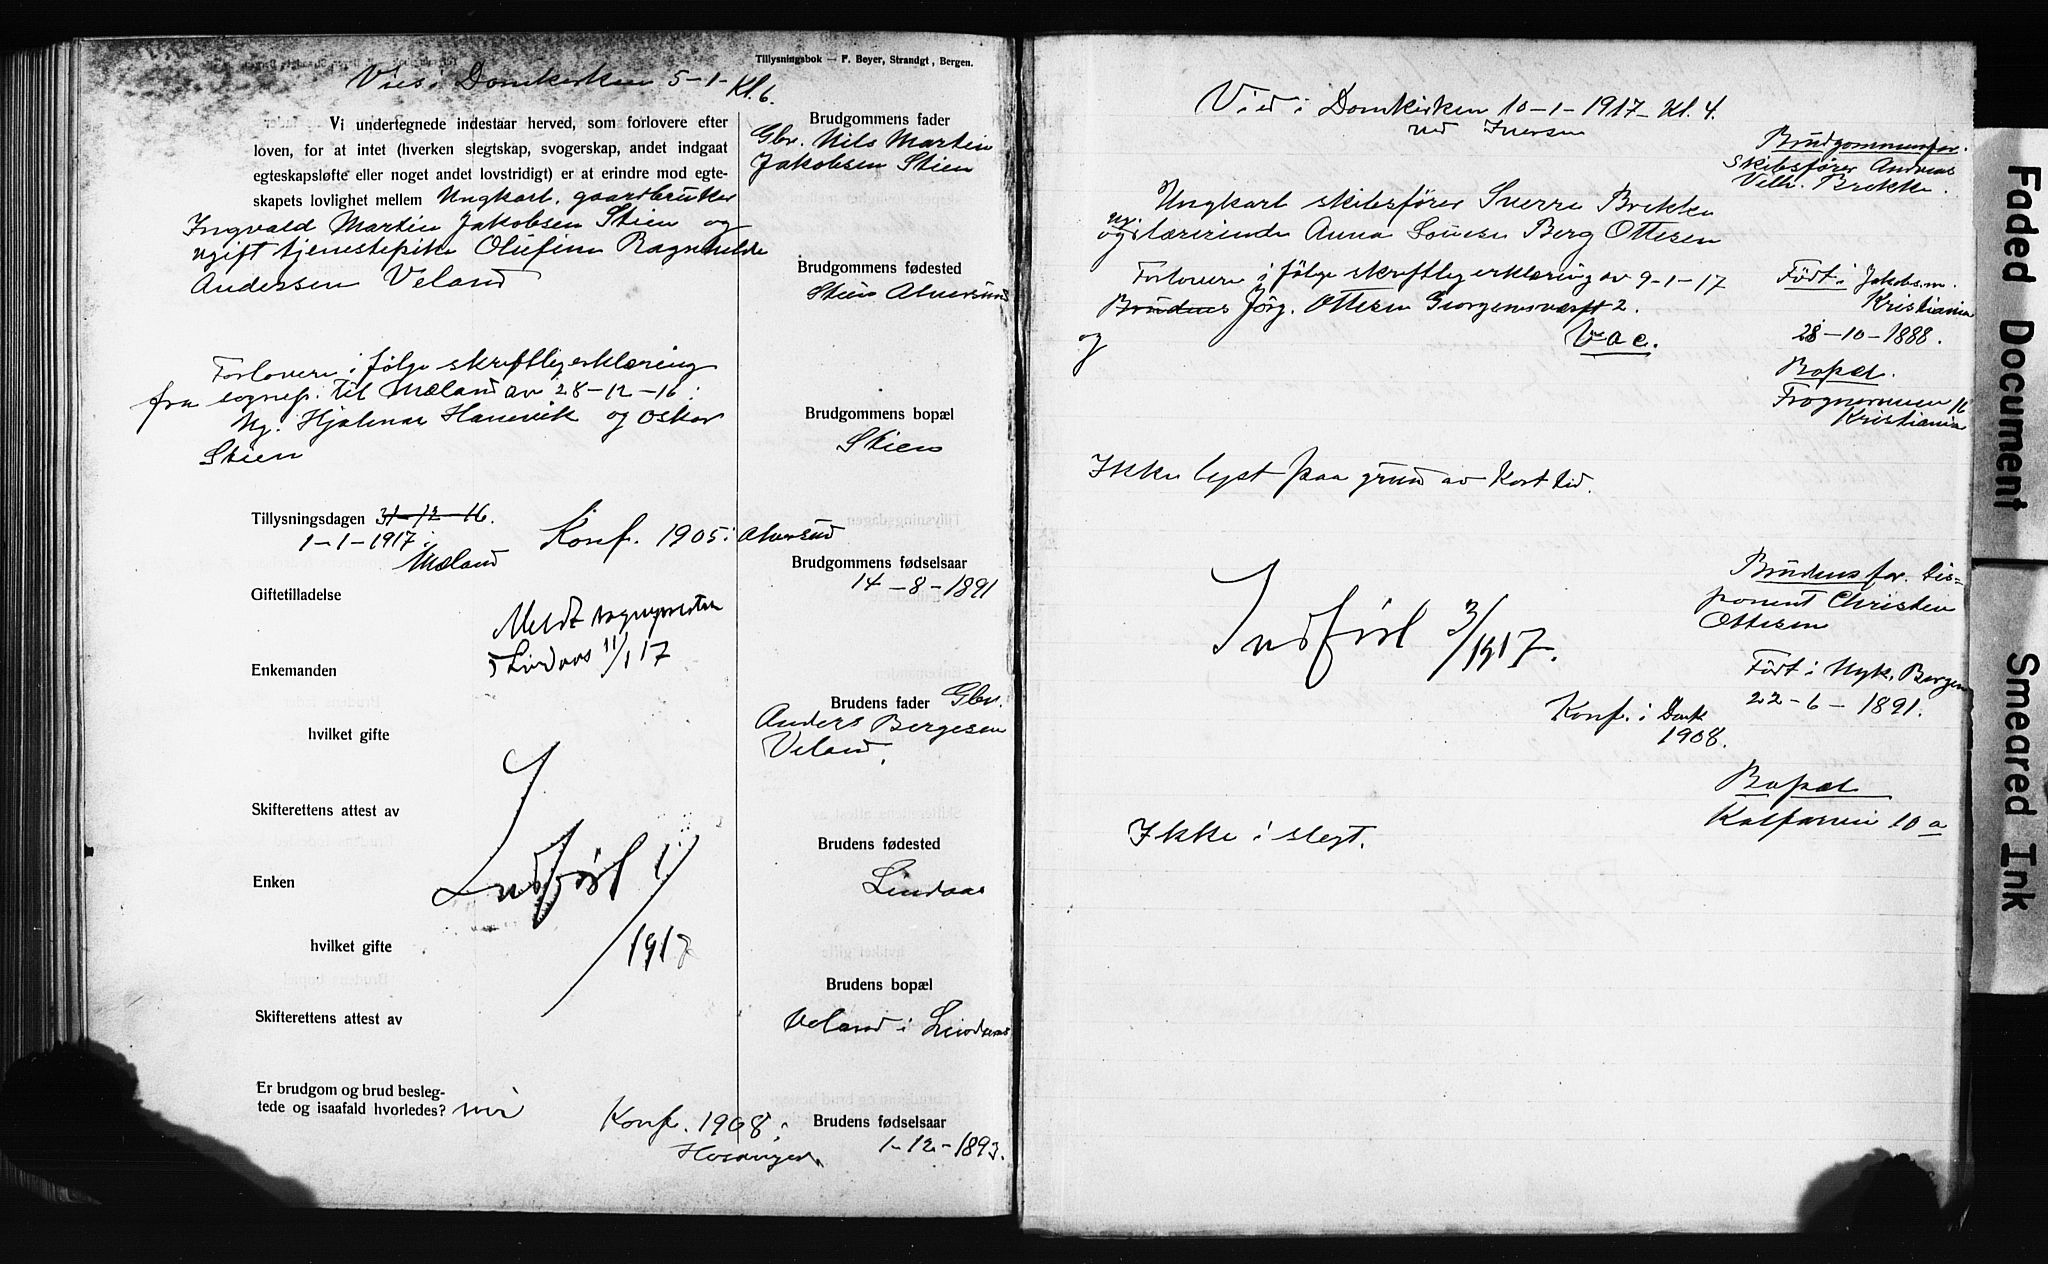 Tillysningsbok — F. Beyer, Strandgt, Bergen.
Vies i Domkirken 5-1- Kl. 6.
Vi undertegnede indestaar herved, som forlovere efter
loven, for at intet (hverken slegtskap, svogerskap, andet indgaat
egteskapsløfte eller noget andet lovstridigt) er at erindre mod egte-
skapets lovlighet mellem Ungkarl, gaardbruker
Ingvald Martin Jakobsen Stien og
ugift tjenestepike Olufine Ragnhilde
Andersen Veland
Forlovere i følge skriftlig erklæring
fra sognepr. til Mæland av 28-12-16:
Ng. Hjalmar Hanevik og Oskar
Stien
Tillysningsdagen 31-12-16.
1-1-1917 i
Mæland
Konf. 1905 i Alversund
Giftetilladelse
Meldt sognepresten
i Lindaas 11/1 17
Enkemanden
hvilket gifte
Skifterettens attest av
Enken
Indført 1/1917
hvilket gifte
Skifterettens attest av
Er brudgom og brud besleg-
tede og isaafald hvorledes? nei
Konf. 1908 i
Hosanger
Brudgommens fader
Gbr. Nils Martin
Jakobsen Stien
Brudgommens fødested
Stien Alversund
Brudgommens bopæl
Stien
Brudgommens fødselsaar
14-8-1891
Brudens fader Gbr.
Anders Bergesen
Veland.
Brudens fødested
Lindaas
Brudens bopæl
Veland i Lindaas
Brudens fødselsaar
1-12-1893.
Vied i Domkirken 10-1-1917 Kl. 4.
ved Iversen
Ungkarl skibsfører Sverre Brekke
og ug. lærerinde Anna Louise Berg Ottesen
Forlovere i følge skriftlig erklæring av 9-1-17
Brudens Jørg. Ottesen Georgernesverft 2.
og
Vac.
Ikke lyst paa grund av kort tid.
Indført 3/1917.
Konf. i Domk
1908.
Ikke i slegt.
Brudgommens far.
Skibsfører Andreas
Velh. Brekke.
Født i Jakobs m.
Kristiania
28-10-1888.
Bopæl.
Frognerveien 16
Kristiania
Brudens far. Dis-
ponent Christen
Ottesen
Født i Nyk. Bergen
22-6-1891.
Bopæl
Kalfarvei 10 a
Faded Document
Smeared Ink